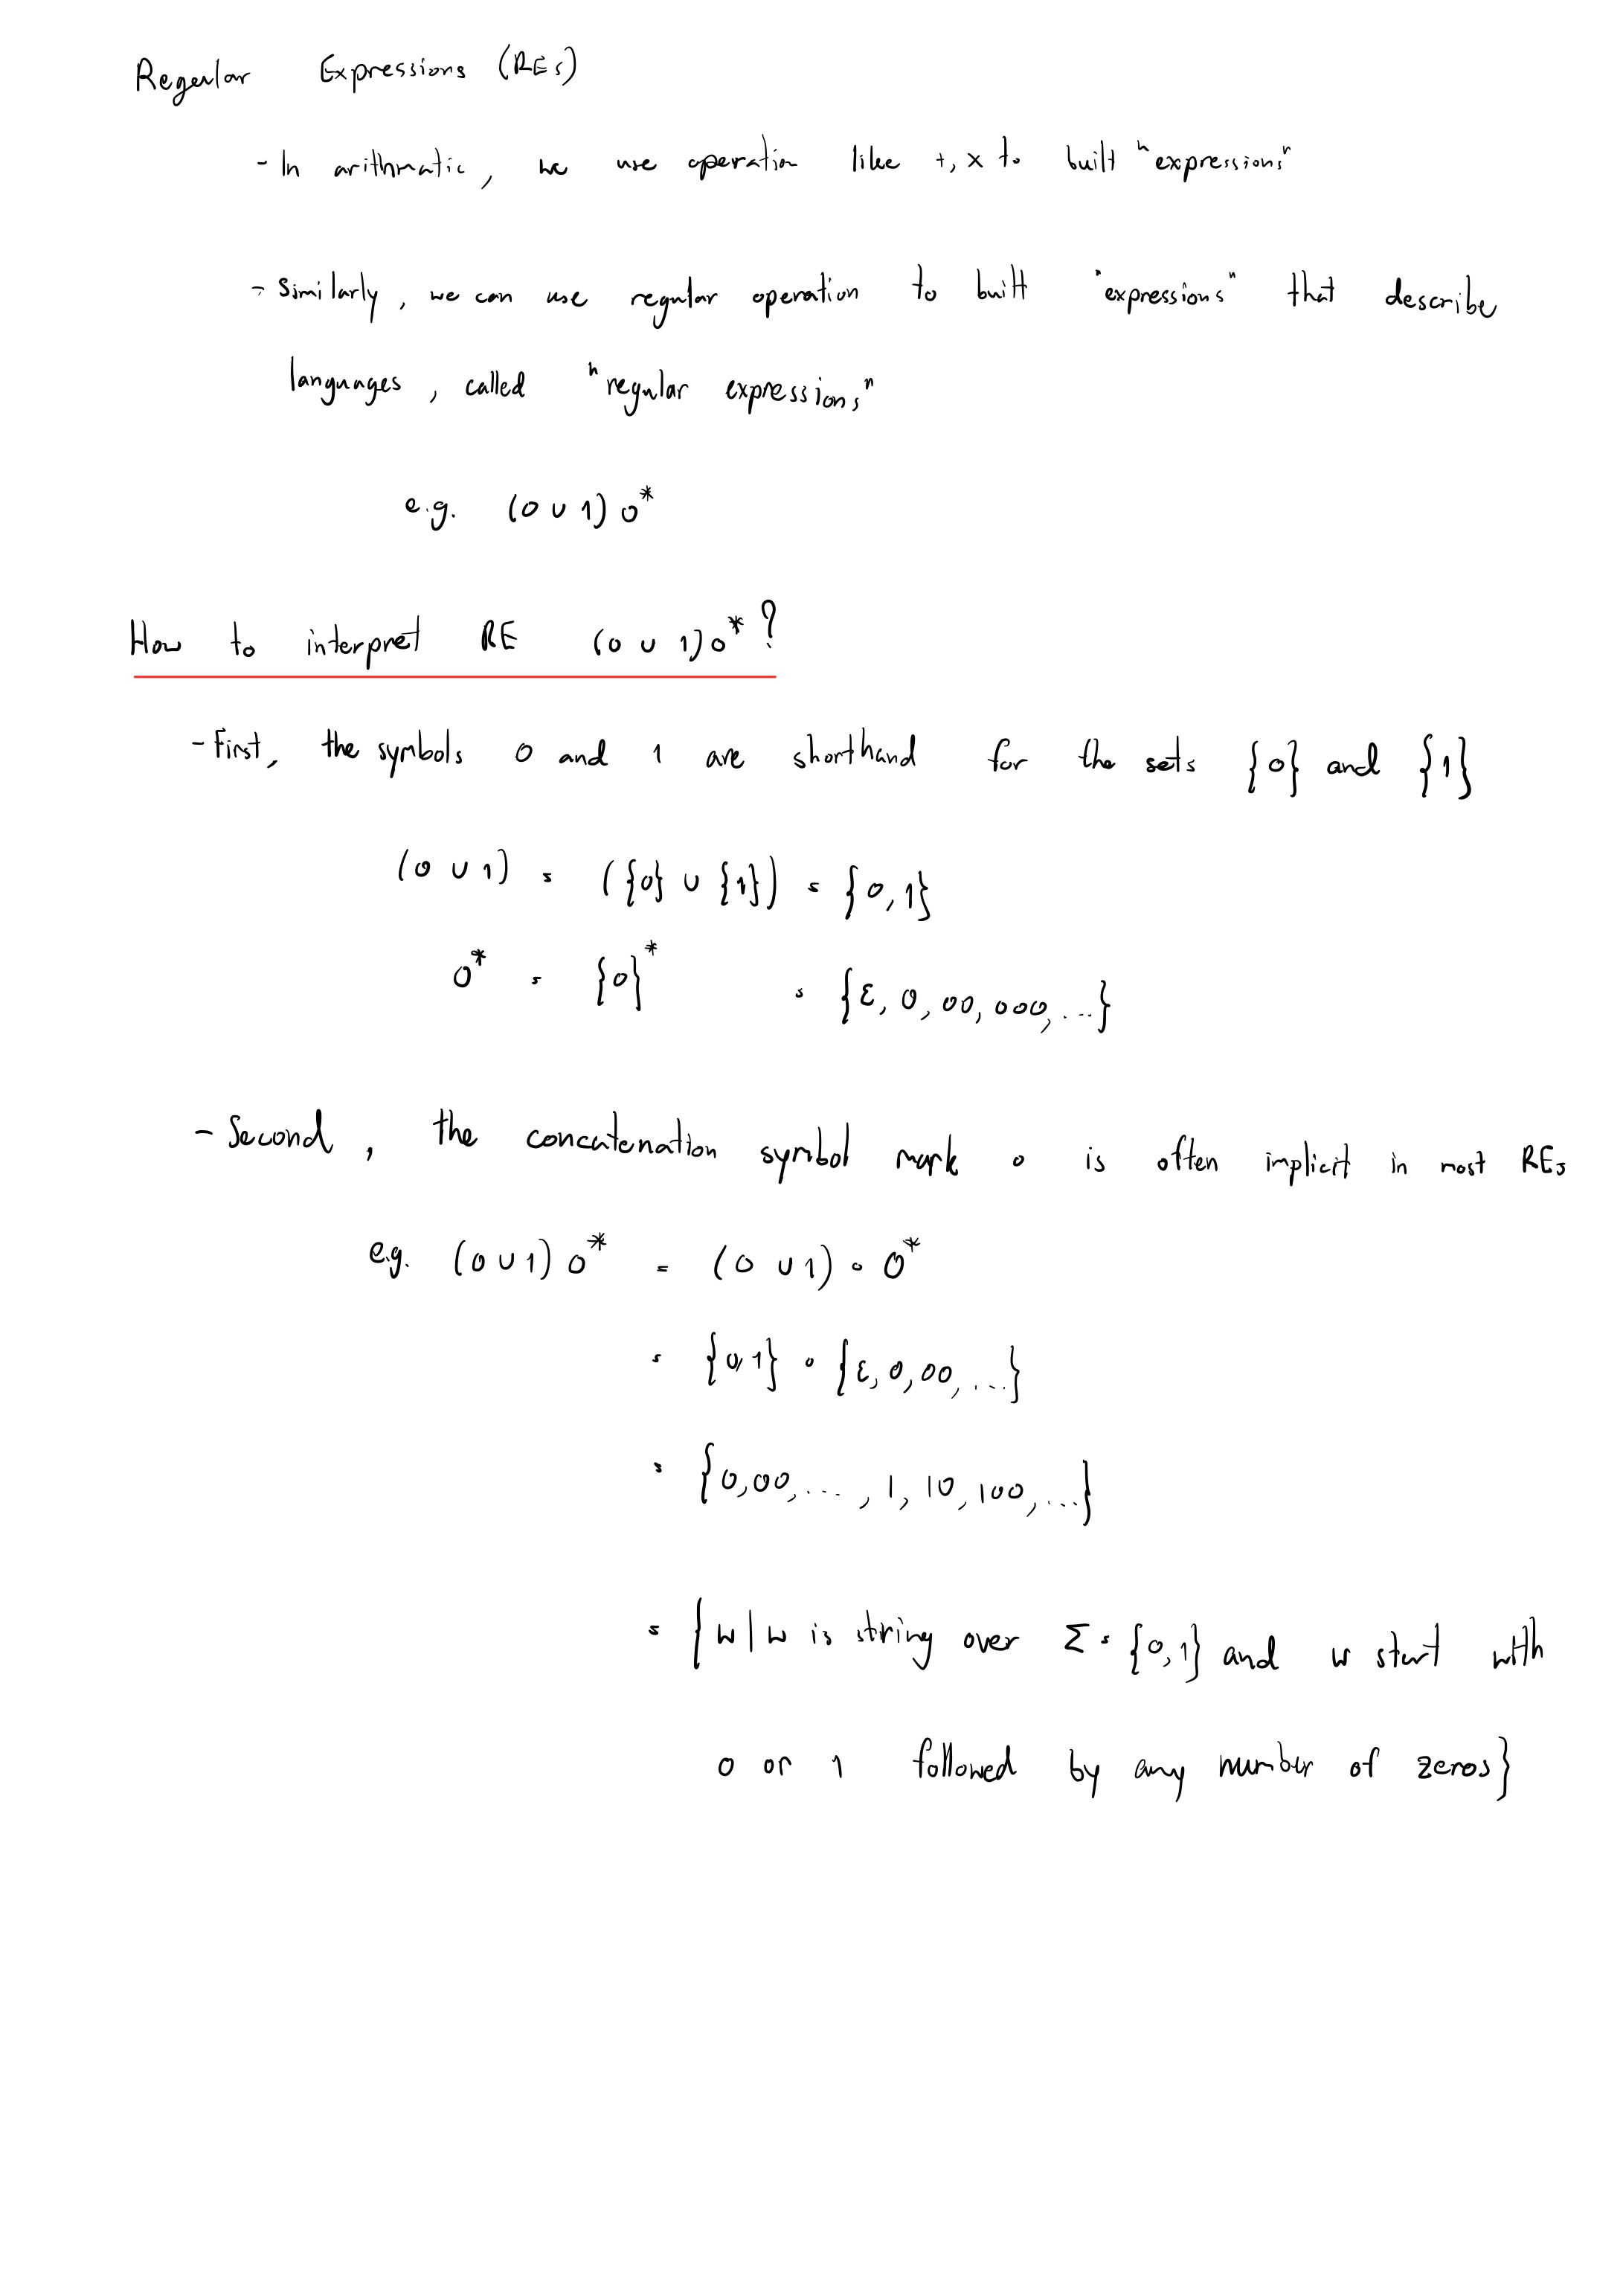 Regular Expressions (REs)
- In arithmatic, we use operation like +, x to built "expressions"
- Similarly, we can use regular operation to built "expressions" that describe
languages, called "regular expressions"
e.g. (0 ∪ 1) 0*
How to interpret RE (0 ∪ 1) 0* ?
- First, the symbols 0 and 1 are shorthand for the sets {0} and {1}
(0 ∪ 1) = ({0} ∪ {1}) = {0, 1}
0* = {0}* = {ε, 0, 00, 000, ...}
- Second, the concatenation symbol mark ∘ is often implicit in most REs
e.g. (0 ∪ 1) 0* = (0 ∪ 1) ∘ 0*
= {0, 1} ∘ {ε, 0, 00, ...}
= {0, 00, ..., 1, 10, 100, ...}
= {w | w is string over Σ = {0, 1} and w start with
0 or 1 followed by any number of zeros}